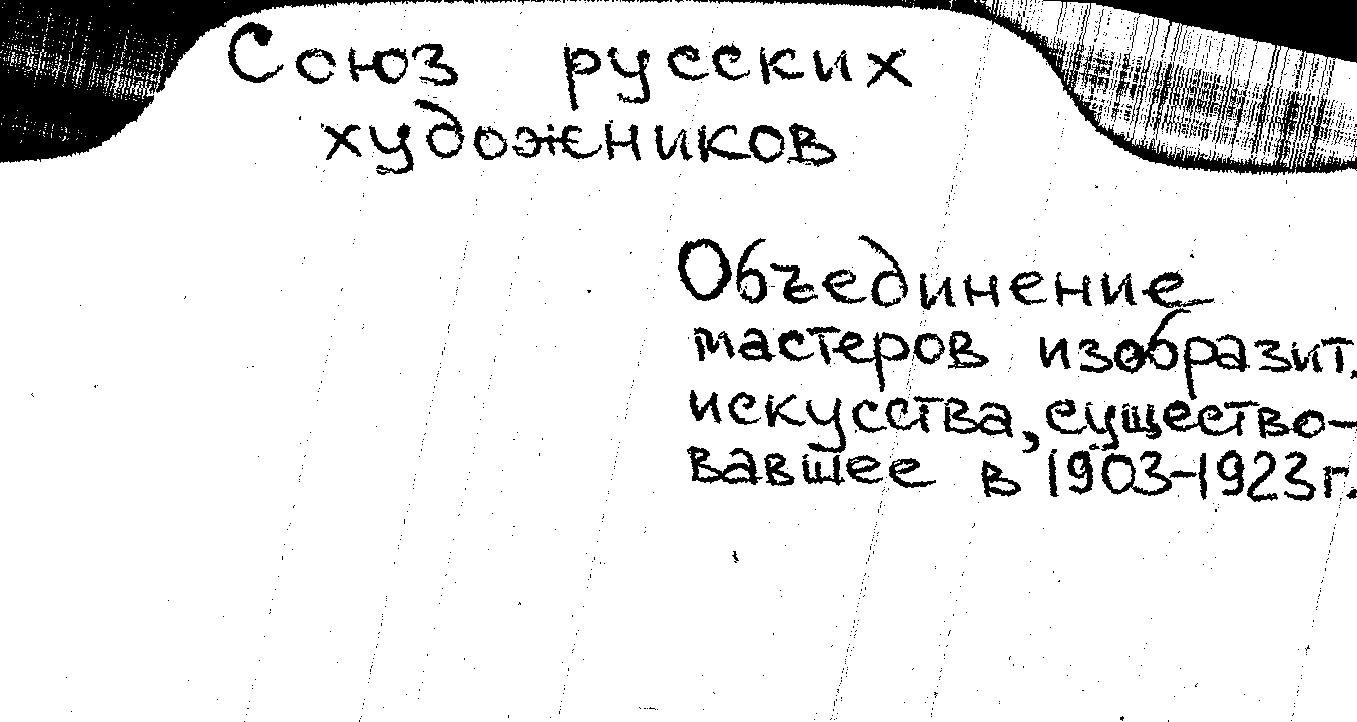 Союз русских
художников
Объединение
мастеров изобразит.
искусства, существо-
вавшее в 1903-1923г.